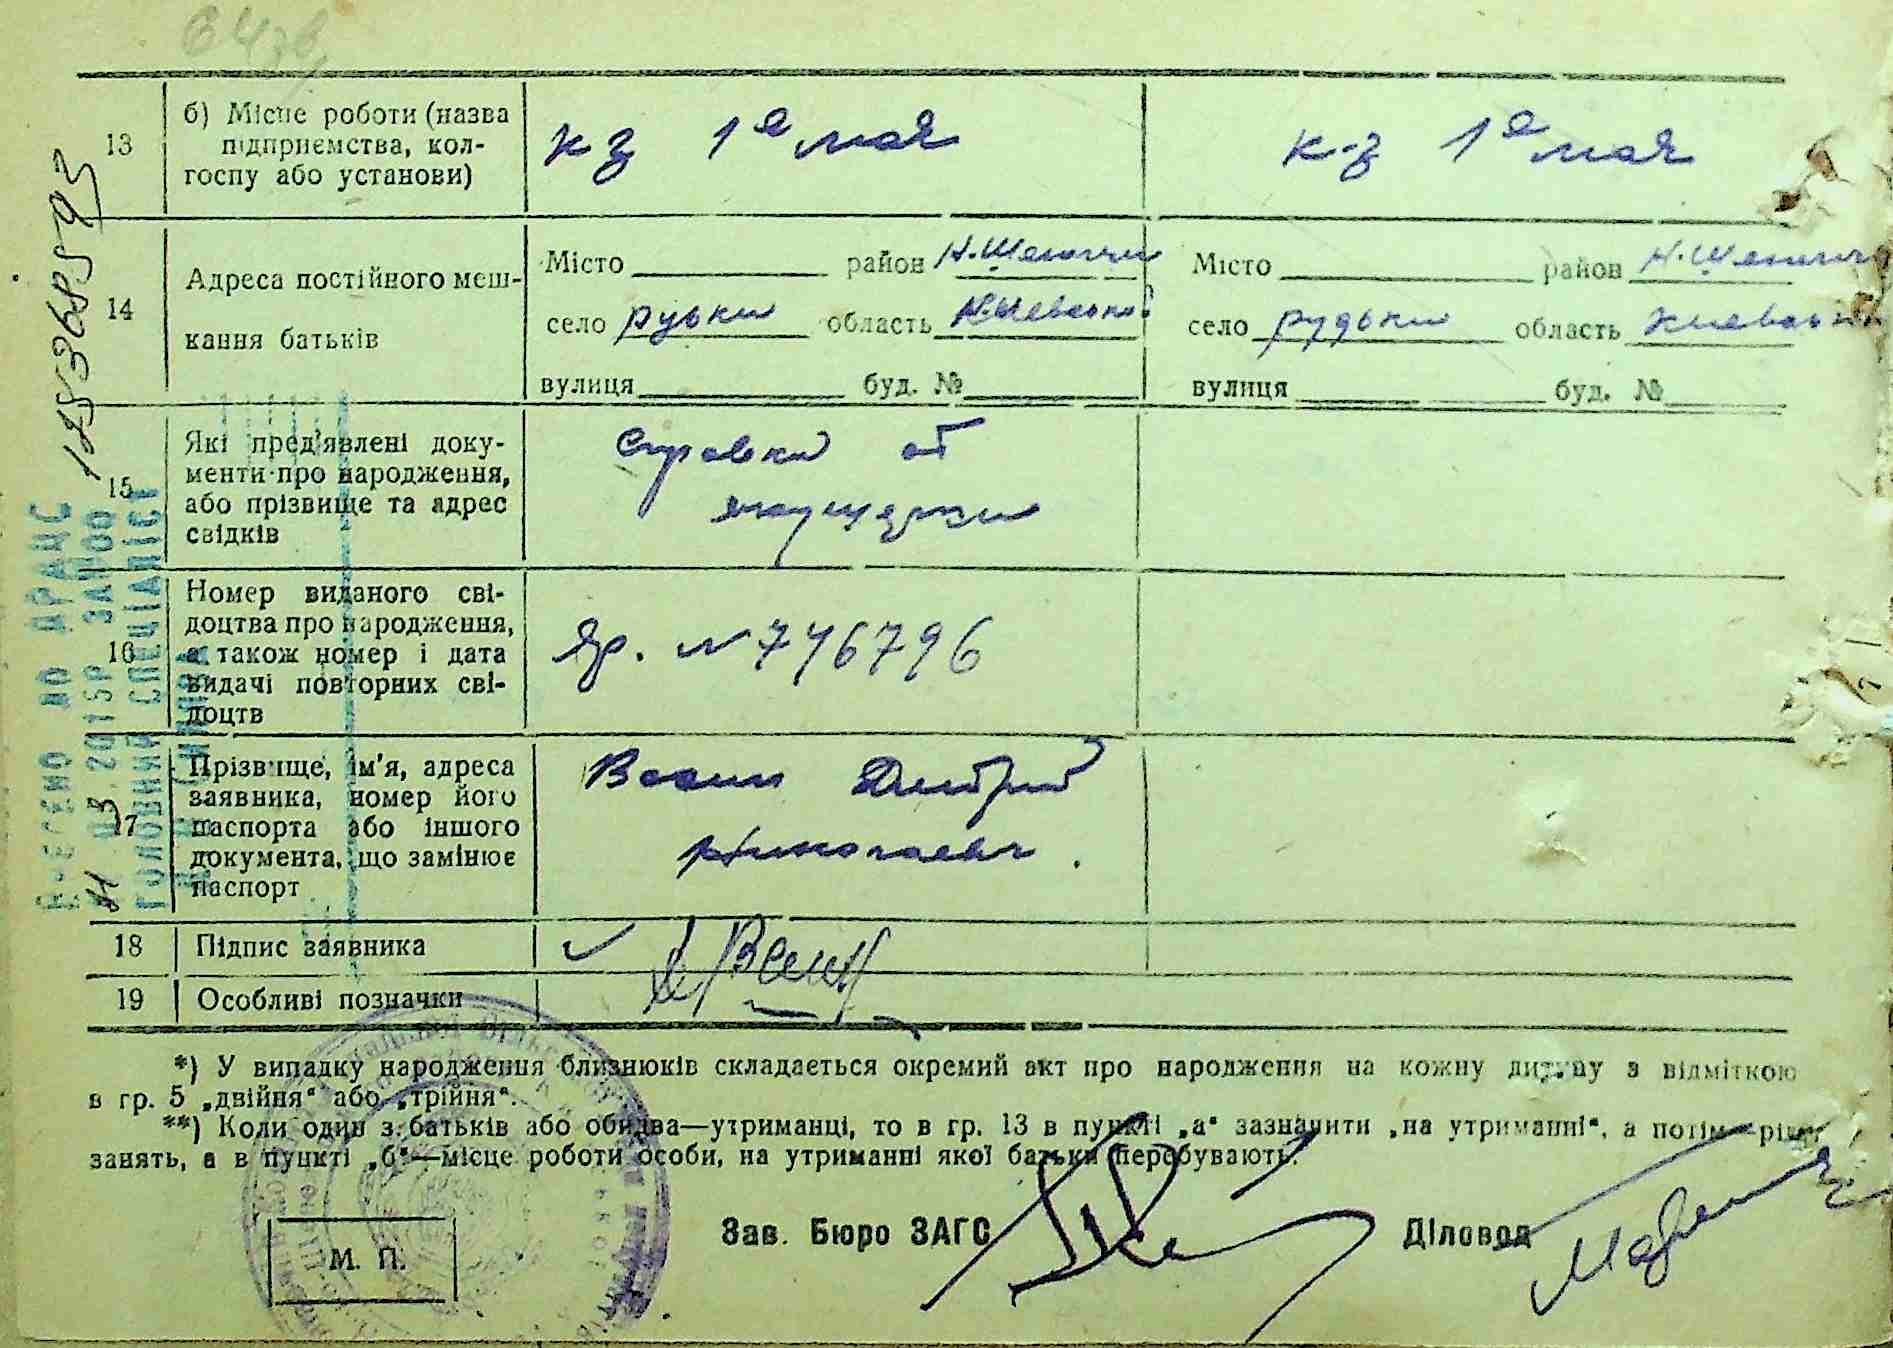 13
б) Місце роботи (назва
підприємства, кол-
госпу або установи)
к-з 1е мая
к-з 1е мая
14
Адреса постійного меш-
кання батьків
Місто район Н.Шепичи
село рудьки область Киевской
вулиця буд. №
Місто район Н.Шепичи
село рудьки область Киевской
вулиця буд. №
15
Які пред'явлені доку-
менти про народження,
або прізвище та адрес
свідків
Справка от
акушерки
16
Номер виданого сві-
доцтва про народження,
а також номер і дата
видачі повторних сві-
доцтв
N 746796
17
Прізвище, ім'я, адреса
заявника, номер його
паспорта або іншого
документа, що замінює
паспорт
Дмитрий
Николаевич.
18
Підпис заявника
19
Особливі позначки
*) У випадку народження близнюків складається окремий акт про народження на кожну дитину з відміткою
в гр. 5 „двійня“ або „трійня“.
**) Коли один з батьків або обидва—утриманці, то в гр. 13 в пункті „а“ зазначити „на утриманні“, а потім рід
занять, а в пункті „б“—місце роботи особи, на утриманні якої батьки перебувають.
М. П.
Зав. Бюро ЗАГС
Діловод
ВНЕСЕНО ДО ДРАЦС
2015Р
ГОЛОВНИЙ СПЕЦІАЛІСТ